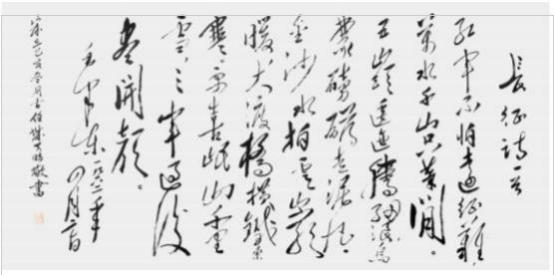 長征詩一首
紅軍不怕遠征難
萬水千山只等閒。
五嶺逶迤騰細浪烏
蒙磅礴走泥丸
金沙水拍雲崖
暖大渡橋橫鐵索
寒更喜岷山千里
雪三軍過後
盡開顏。
毛澤東一九六二年
四月廿日
己亥冬月書 敬書